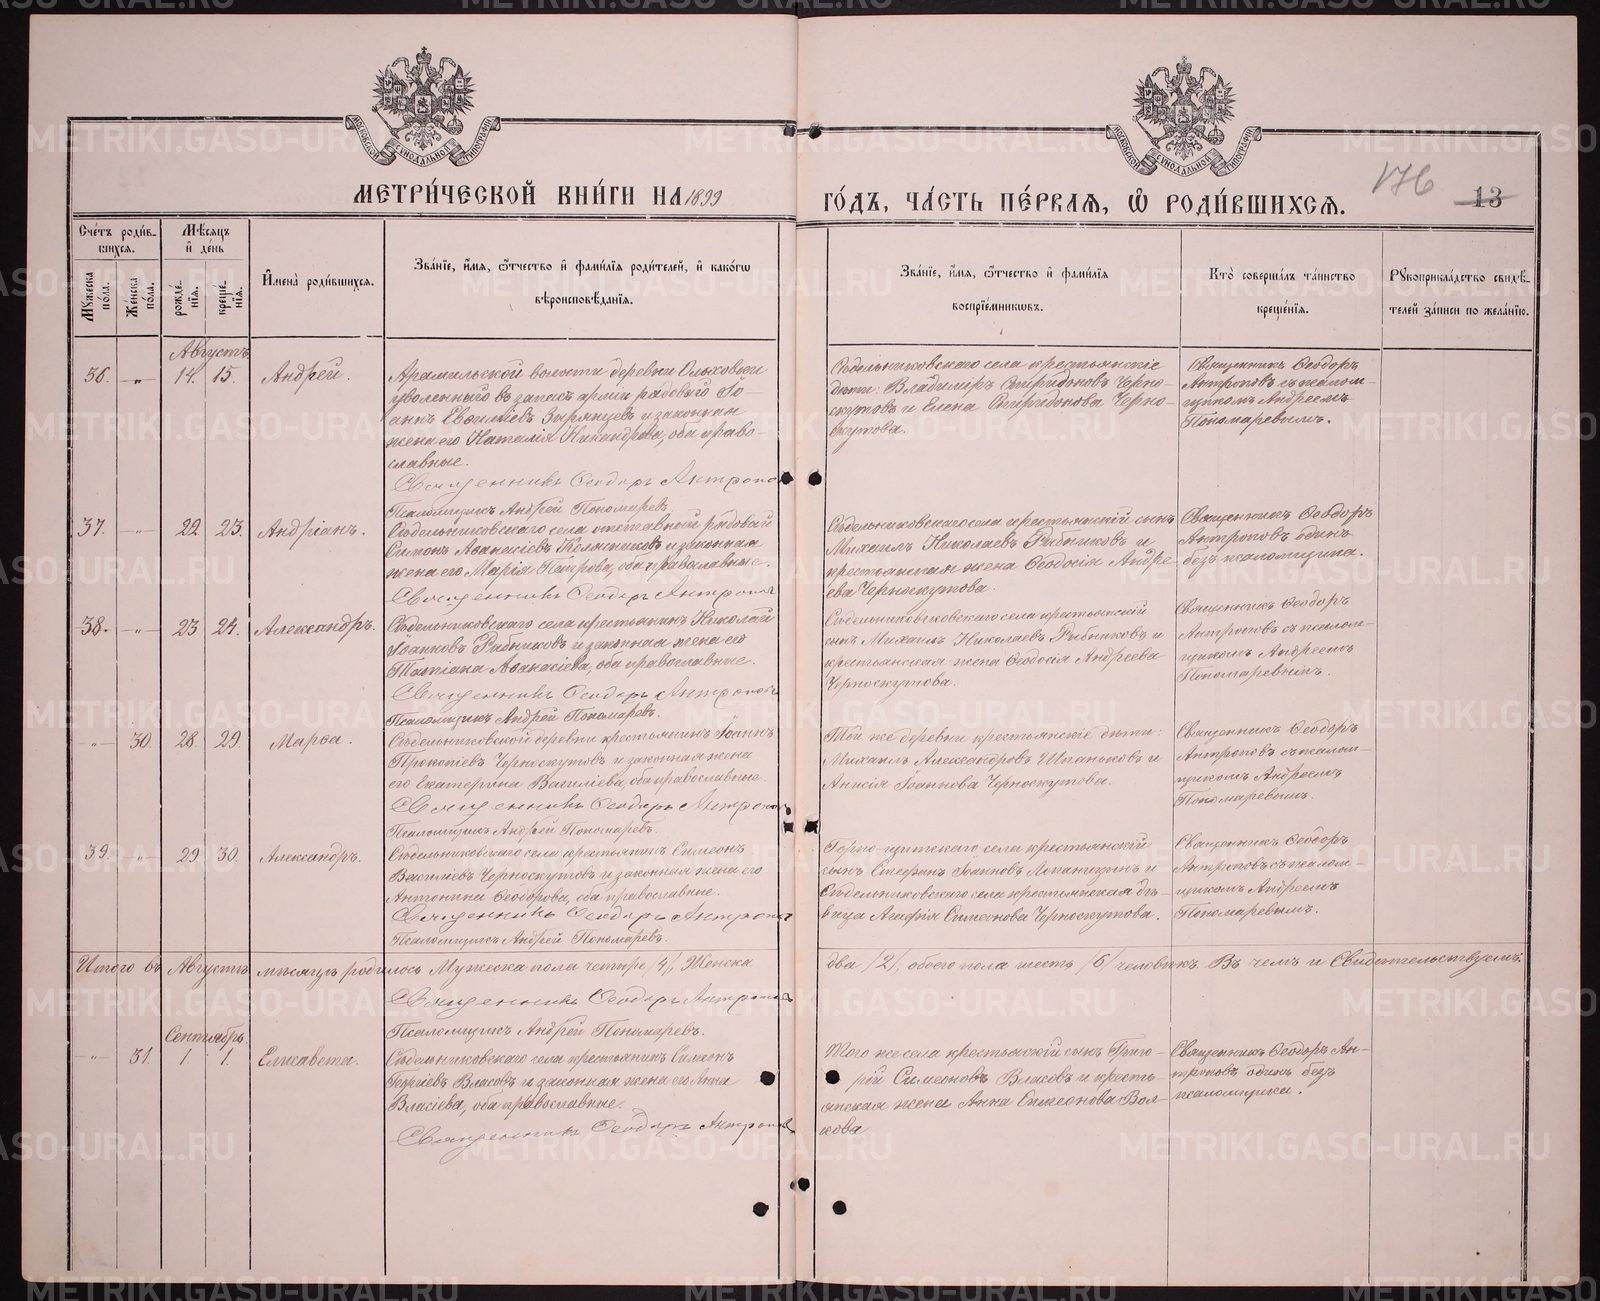 МЕТРИ́ЧЕСКОЙ КНИ́ГИ НА 1899
ГО́ДЪ, ЧА́СТЬ ПЕ́РВАЯ, Ѽ РОДИ́ВШИХСЯ.
176
13
Сче́тъ роди́в-
шихся.
Мꙋ́жеска по́ла.
Же́нска по́ла.
Мѣ́сяцъ и де́нь
рожде́нїя.
креще́нїя.
Имена̀ роди́вшихся.
Зва́нїе, и́мя, ѻ́тчество и фами́лїя роди́телей, и како́гѡ
вѣроисповѣ́данїя.
Зва́нїе, и́мя, ѻ́тчество и фами́лїя
воспрїе́мникѡвъ.
Кто̀ соверша́лъ та́инство
креще́нїя.
Рꙋкоприкла́дство свидѣ́-
телей за́писи по жела́нїю.
Августъ
36. „ 14. 15. Андрей.
Арамильской волости деревни Ольховки
уволеннаго въ запасъ арміи рядоваго Іо-
аннъ Евѳиміевъ Зырянцевъ и законная
жена его Наталія Никандрова, оба право-
славные.
Священникъ Ѳеодоръ Антропо
Псаломщикъ Андрей Пономаревъ
Сѣдельниковскаго села крестьянскіе
дѣти: Владиміръ Спиридоновъ Черно-
скутовъ и Елена Спиридонова Черно-
скутова.
Священникъ Ѳеодоръ
Антроповъ съ псалом-
щикомъ Андреемъ
Пономаревымъ.
37. „ 22 23. Андріанъ.
Сѣдельниковскаго села отставной рядовой
Симонъ Аѳанасіевъ Колясниковъ и законная
жена его Марія Петрова, оба православные.
Священникъ Ѳеодоръ Антропов
Сѣдельниковскаго села крестьянскій сынъ
Михаилъ Николаевъ Рыбниковъ и
крестьянская жена Ѳеодосія Андре-
ева Черноскутова.
Священникъ Ѳеодоръ
Антроповъ одинъ
безъ псаломщика.
38. „ 23 24. Александръ.
Сѣдельниковскаго села крестьянинъ Николай
Іоанновъ Рыбниковъ и законная жена его
Татіана Аѳанасіева, оба православные.
Священникъ Ѳеодоръ Антропов
Псаломщикъ Андрей Пономаревъ.
Сѣдельниковскаго села крестьянскій
сынъ Михаилъ Николаевъ Рыбниковъ и
крестьянская жена Ѳеодосія Андреева
Черноскутова.
Священникъ Ѳеодоръ
Антроповъ съ псалом-
щикомъ Андреемъ
Пономаревымъ.
„ 30. 28. 29. Марѳа.
Сѣдельниковской деревни крестьянинъ Іоаннъ
Прокопіевъ Черноскутовъ и законная жена
его Екатерина Василіева, оба православные.
Священникъ Ѳеодоръ Антропо
Псаломщикъ Андрей Пономаревъ.
Той же деревни крестьянскіе дѣти:
Михаилъ Александровъ Шпаньковъ и
Анисія Іоаннова Черноскутова.
Священникъ Ѳеодоръ
Антроповъ съ псалом-
щикомъ Андреемъ
Пономаревымъ.
39. „ 29 30. Александръ.
Сѣдельниковскаго села крестьянинъ Симеонъ
Василіевъ Черноскутовъ и законная жена его
Антонина Ѳеодорова, оба православные.
Священникъ Ѳеодоръ Антропов
Псаломщикъ Андрей Пономаревъ.
Горно-щитскаго села крестьянскій
сынъ Стефанъ Іоанновъ Лопатинъ и
Сѣдельниковскаго села крестьянская дѣ-
вица Агафія Симеонова Черноскутова.
Священникъ Ѳеодоръ
Антроповъ съ псалом-
щикомъ Андреемъ
Пономаревымъ.
Итого въ Августѣ мѣсяцѣ родилось Мужеска пола четыре /4/, Женска
два /2/, обоего пола шесть /6/ человѣкъ. Въ чемъ и Свидѣтельствуемъ:
Священникъ Ѳеодоръ Антропов
Псаломщикъ Андрей Пономаревъ.
Сентябрь
„ 31. 1 1. Елисавета.
Сѣдельниковскаго села крестьянинъ Симеонъ
Георгіевъ Власовъ и законная жена его Анна
Власіева, оба православные.
Священникъ Ѳеодоръ Антропов
Того же села крестьянскій сынъ Григо-
рій Симеоновъ Власовъ и кресть-
янская жена Анна Симеонова Вол-
кова
Священникъ Ѳеодоръ Ан-
троповъ одинъ безъ
псаломщика.
METRIKI.GASO-URAL.RU